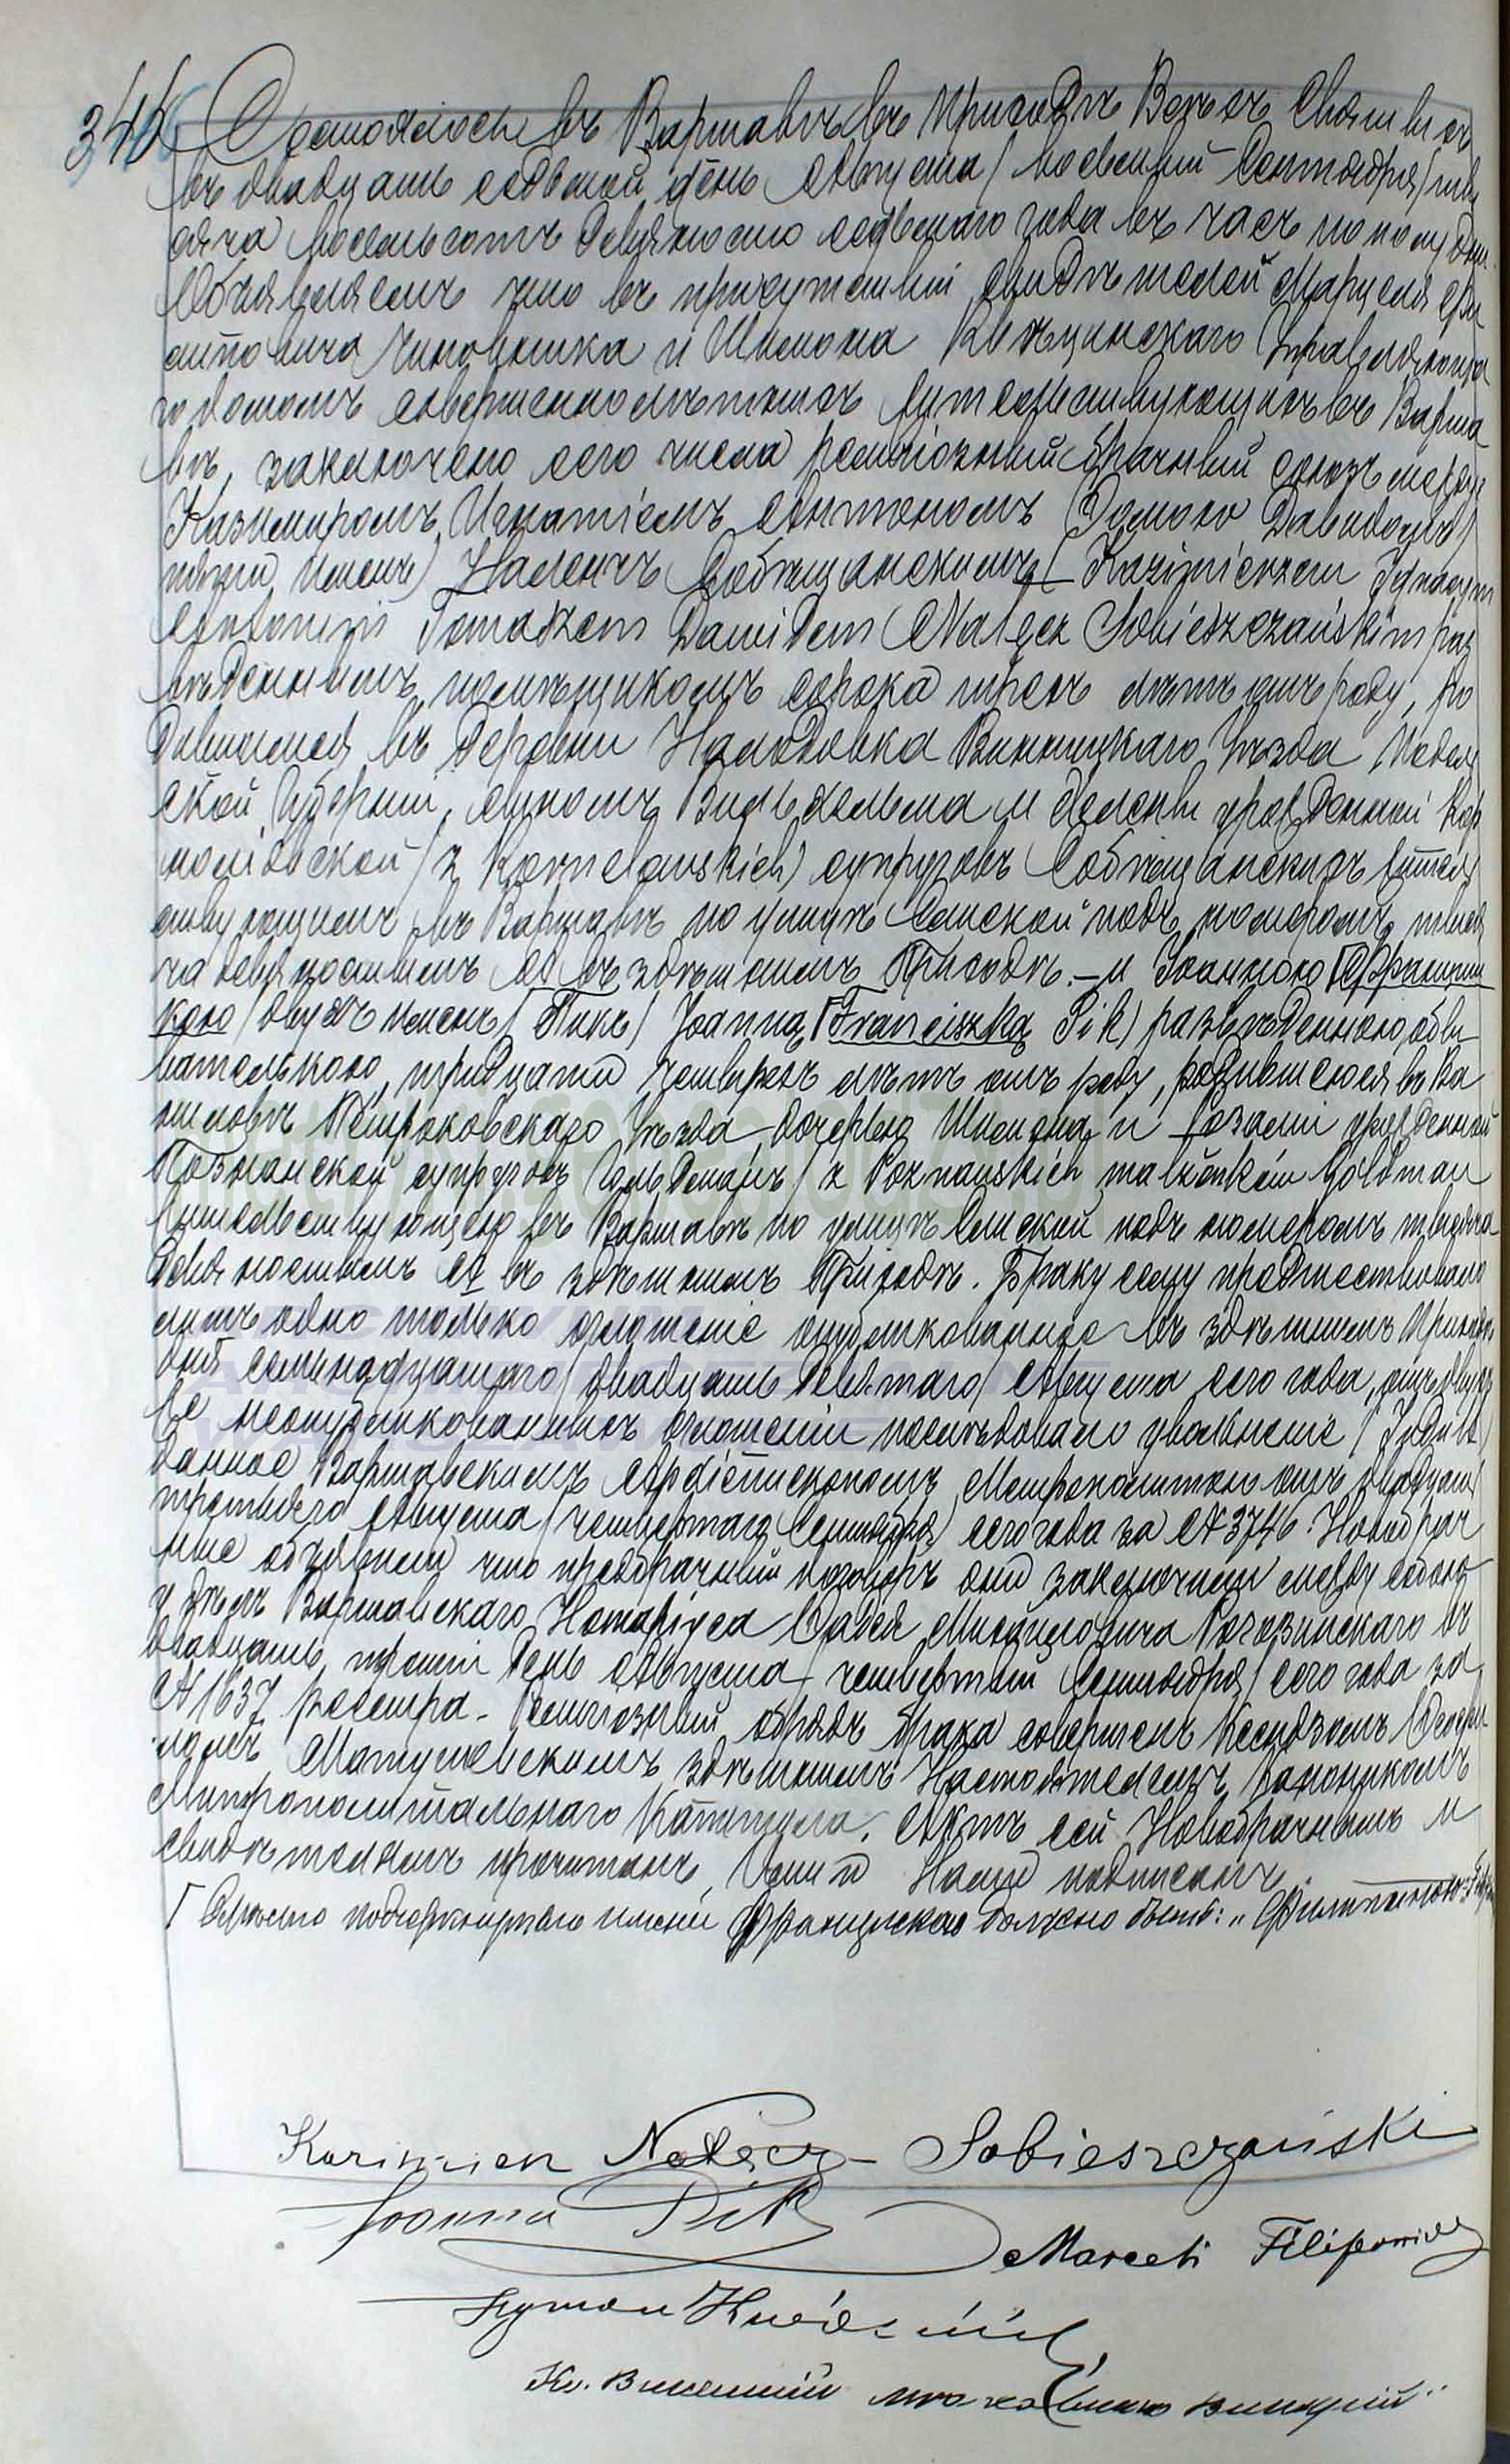 346
Состоялось въ Варшавѣ въ Приходѣ Всѣхъ Святыхъ
въ двадцать седьмой день Августа / восьмый Сентября / тыся
ча восемьсотъ девяносто седьмаго года въ часъ по полудни.
Объявляемъ что въ присутствіи свидѣтелей Марцелія Фили
повича чиновника и Шимона управляюща
го домомъ совершеннолѣтнихъ жительствующихъ въ Варша
вѣ, заключенъ сего числа религіозный брачный союзъ между
Казимиромъ, Игнатіемъ Антономъ Ѳомою Давидомъ /
пяти именъ / Наленчъ Собѣщанскимъ / Kazimierzem Ignacym
Antonim Tomaszem Dawidem Nałęcz Sobieszczańskim / раз
веденнымъ, помѣщикомъ сорока трехъ лѣтъ отъ роду, ро
дившимся въ деревни Винницкаго Уѣзда Подоль
ской Губерніи, сыномъ Вильгельма и Елены урожденной Кор
/ z Kornelowskich / супруговъ Собѣщанскихъ житель
ствующимъ въ Варшавѣ по улицѣ подъ номеромъ тыся
ча въ здѣшнемъ Приходѣ. – и Іоанною Францис
кою / двухъ именъ / Пикъ / Joanną Franciszką Pik / разведенною, обы
вательною, тридцати четырехъ лѣтъ отъ роду, родившеюся въ
Петроковскаго Уѣзда дочерью Шимона и Розаліи урожденной
Познанской супруговъ Гольдманъ / z Poznańskich małżonków Goldman
жительствующею въ Варшавѣ по улицѣ подъ номеромъ тысяча
въ здѣшнемъ Приходѣ. Браку сему предшествовало
одно только оглашеніе опубликованное въ здѣшнемъ Приходѣ
дня семнадцатаго / двадцать девятаго / Августа сего года, отъ двухъ
же неопубликованныхъ оглашеній послѣдовало увольненіе / Indult /
данное Варшавскимъ Архіепископомъ Митрополитомъ отъ двадцать
третьяго Августа / четвертаго Сентября / сего года за № 3746. Новобрач
ные объявили что предбрачный договоръ они заключили между собою
у дѣлъ Варшавскаго Нотаріуса Михайловича въ
двадцать третій день Августа / четвертый Сентября / сего года за
№ 1637 реестра. – Религіозный обрядъ брака совершенъ Ксендзомъ Теофи
ломъ Матушевскимъ здѣшнимъ Настоятелемъ, Каноникомъ
Митрополитальнаго Капитула. Актъ сей Новобрачнымъ и
свидѣтелямъ прочитанъ, Ими и Нами подписанъ.
Вмѣсто подчеркнутаго имени Францискаю должно быть: „
Kazimierz Nałęcz – Sobieszczański
Joanna Pik
Marceli Filipowicz
Szymon
Кс.